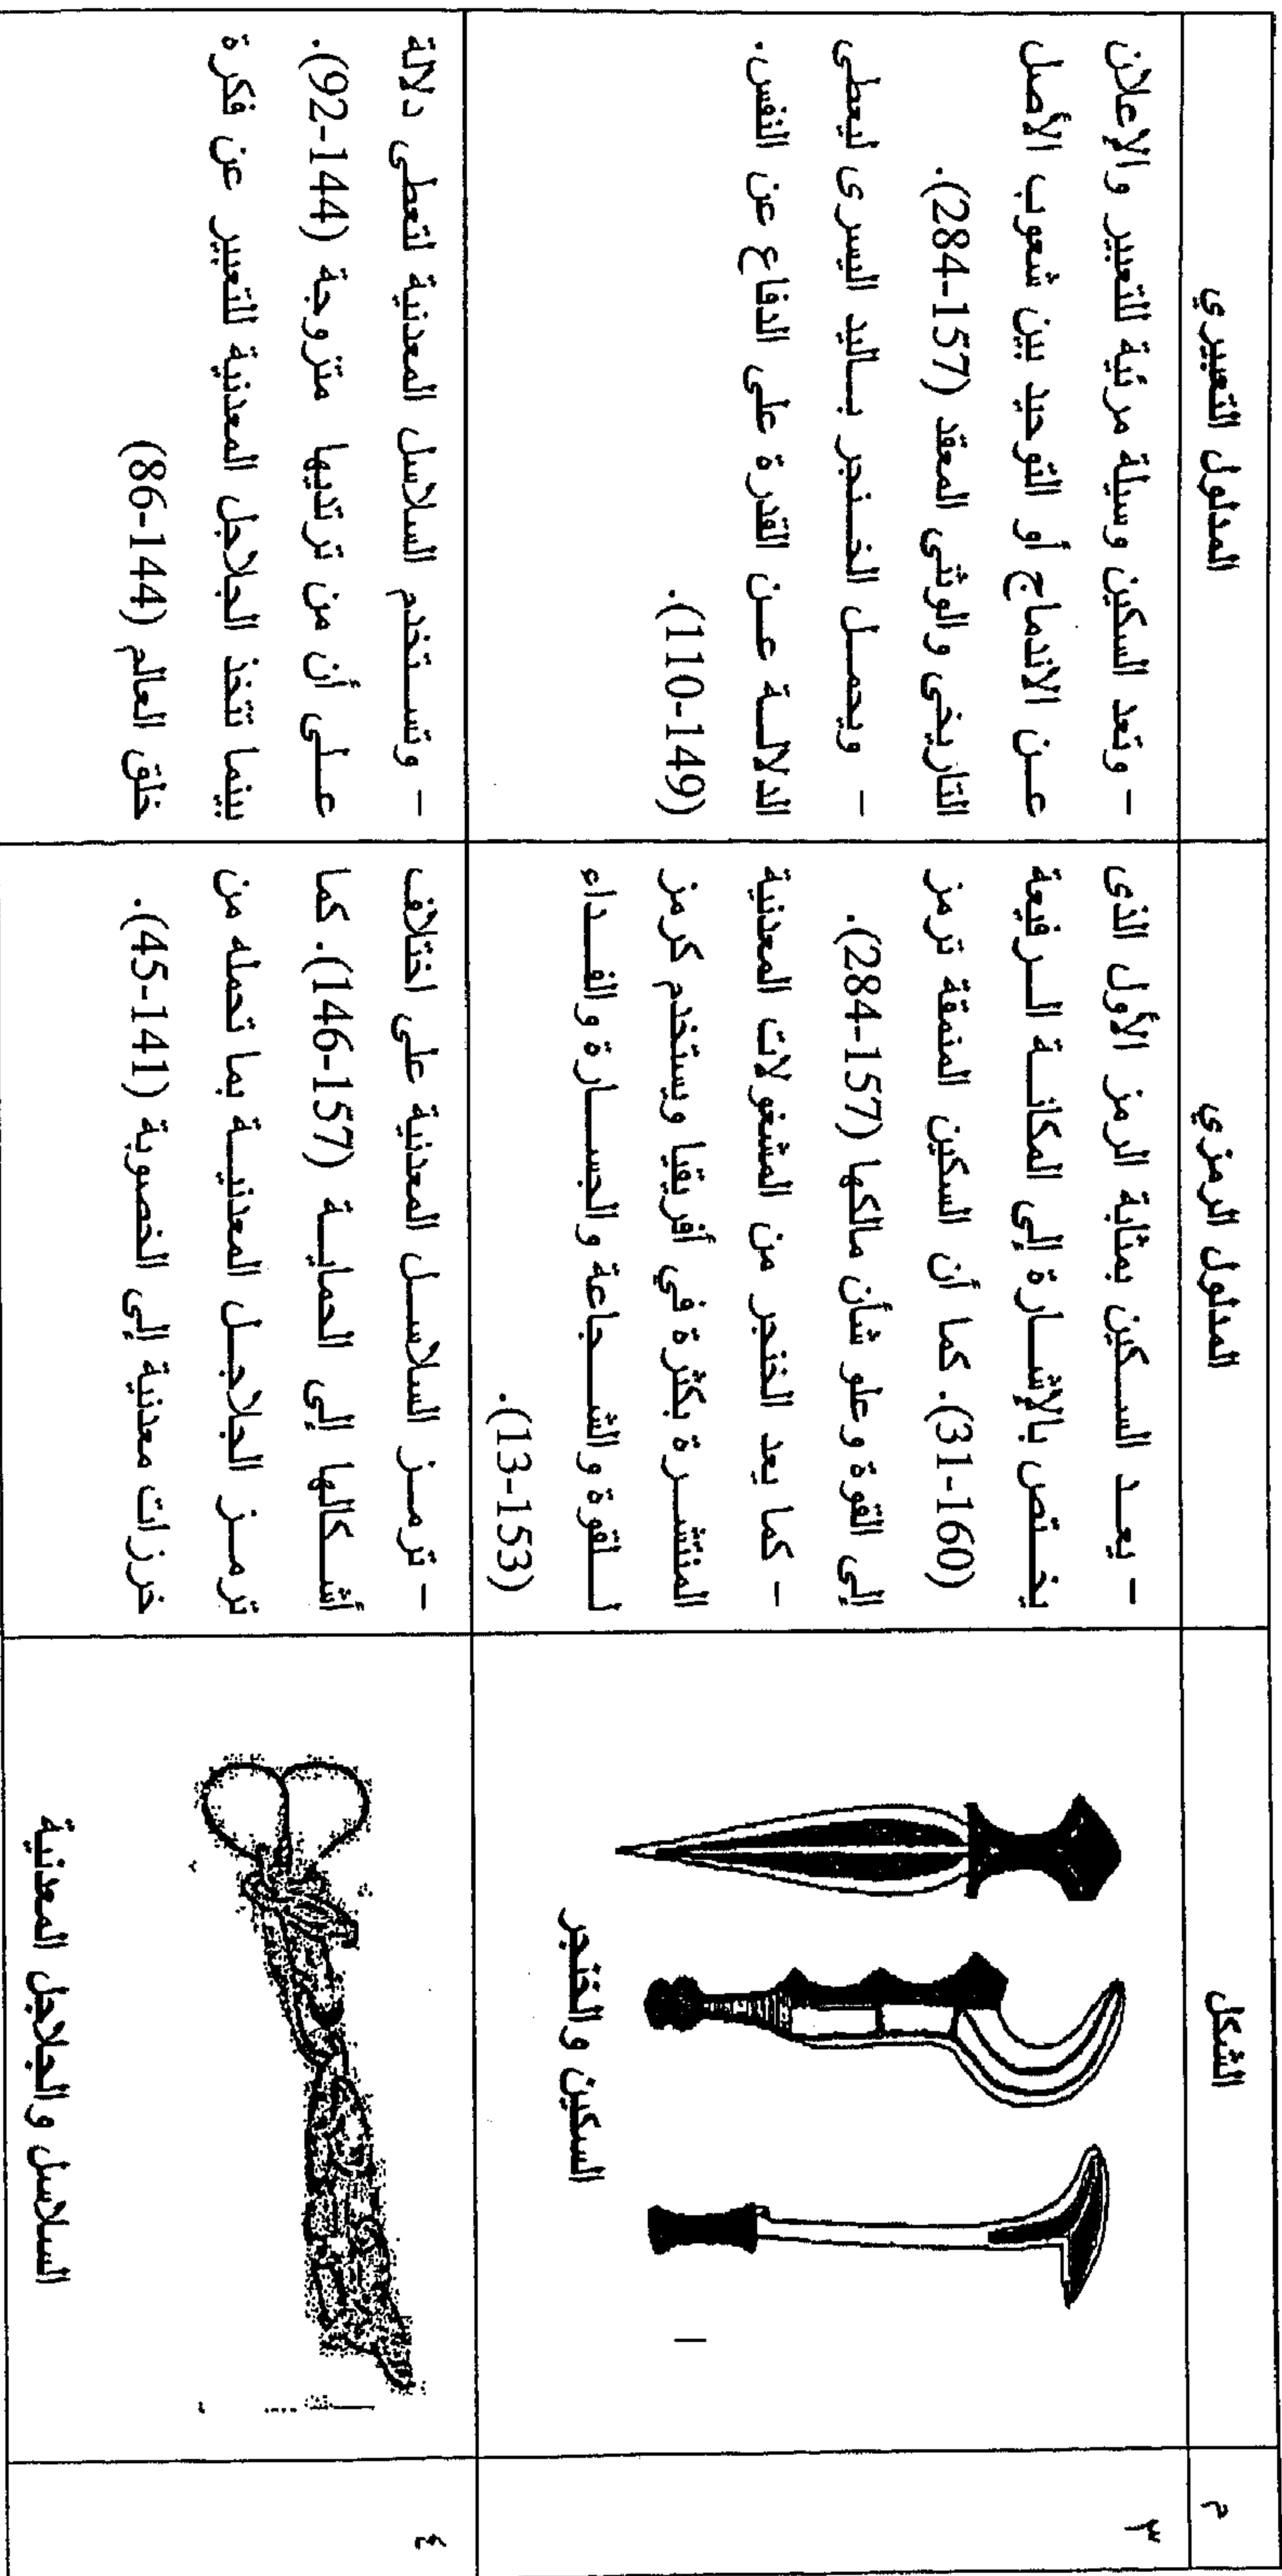 م
الشكل
المدلول الرمزي
المدلول التعبيري
٣
السكين والخنجر
- يعد السكين بمثابة الرمز الأول الذى
يختص بالإشارة إلى المكانة الرفيعة
(31-160). كما أن السكين المنمقة ترمز
إلى القوة وعلو شأن مالكها (157-284).
- كما يعد الخنجر من المشغولات المعدنية
المنتشرة بكثرة في أفريقيا ويستخدم كرمز
للقوة والشجاعة والجسارة والفداء
(13-153).
- وتعد السكين وسيلة مرئية للتعبير والإعلان
عن الاندماج أو التوحيد بين شعوب الأصل
التاريخى والوثنى المعقد (157-284).
- ويحمل الخنجر باليد اليسرى ليعطى
الدلالة عن القدرة على الدفاع عن النفس.
(110-149).
٤
السلاسل والجلاجل المعدنية
- ترمز السلاسل المعدنية على اختلاف
أشكالها إلى الحماية (157-146). كما
ترمز الجلاجل المعدنية بما تحمله من
خرزات معدنية إلى الخصوبة (141-45).
- وتستخدم السلاسل المعدنية لتعطى دلالة
على أن من ترتديها متزوجة (144-92).
بينما تتخذ الجلاجل المعدنية للتعبير عن فكرة
خلق العالم (144-86)